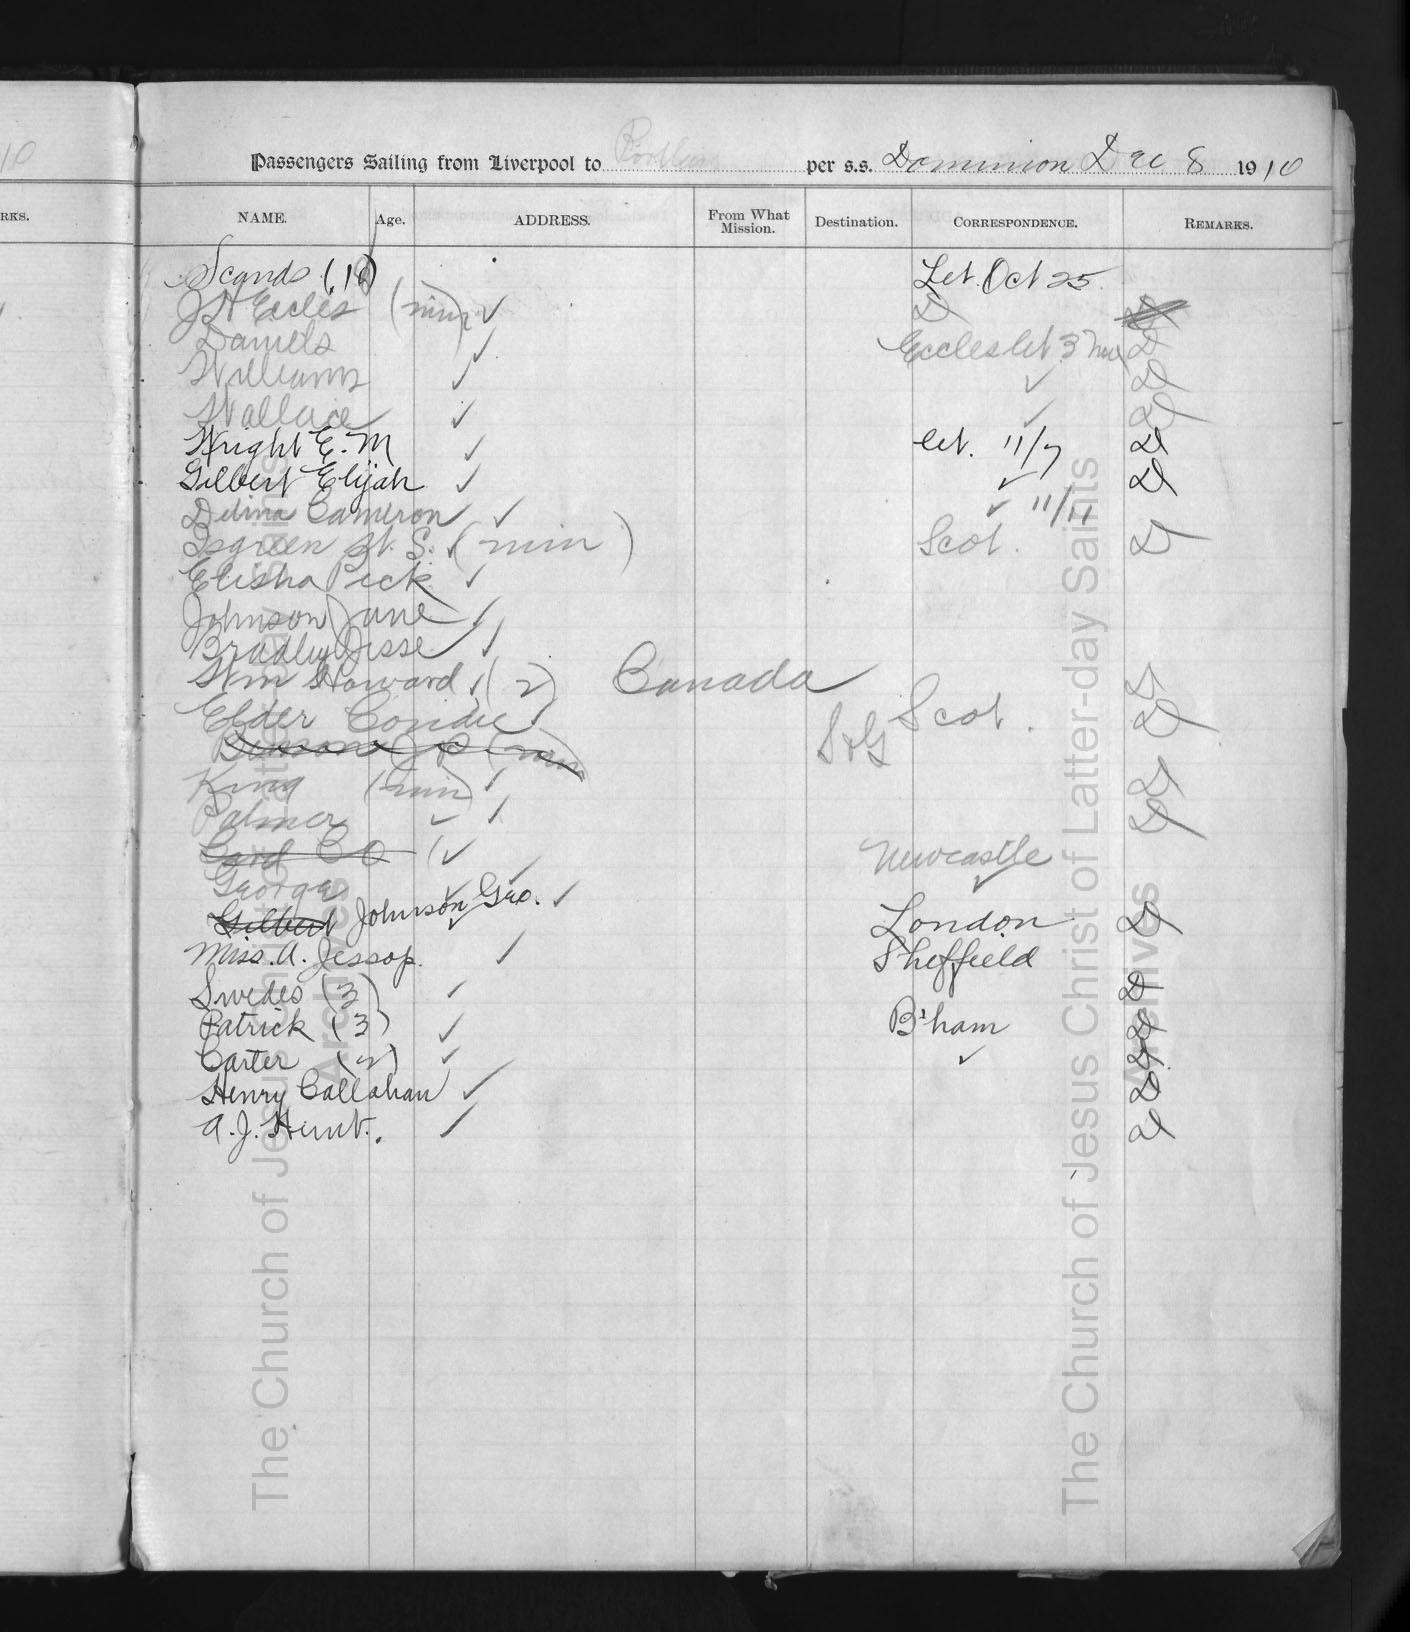 10
Passengers Sailing from Liverpool to Portland per s.s. Dominion Dec 8 1910
RKS.
NAME. Age. ADDRESS. From What Mission. Destination. CORRESPONDENCE. REMARKS.
Scands ( Let. Oct 25
J H Eccles (min) ✓ D
Daniels ✓ Eccles let 3 Nov D
Williams ✓ ✓ D
Wallace ✓ ✓ D
Wright E. M ✓ let. 11/7 D
Gilbert Elijah ✓ ✓ D
Delma Cameron ✓ ✓ ✓ 11/11
Isgreen S. (min) Scot. D
Elisha Peck ✓
Johnson Jane ✓
Bradley Jesse ✓ ✓
Wm Howard ✓ (2) Canada D
Elder Condie ✓ Scot. D
(min S&G
King (min) ✓ D
Palmer ✓ ✓ D
Card C O (✓ Newcastle
George ✓ ✓ ✓
Gilbert Johnson Geo. ✓ ✓ London D
Miss. A. Jessop. ✓ Sheffield
Swedes (3) ✓ D
Patrick (3) ✓ B'ham D
Carter (2) ✓ ✓ D
Henry Callahan ✓ D
A. J. Hunt. ✓ D
The Church of Jesus Christ of Latter-day Saints
Archives
The Church of Jesus Christ of Latter-day Saints
Archives